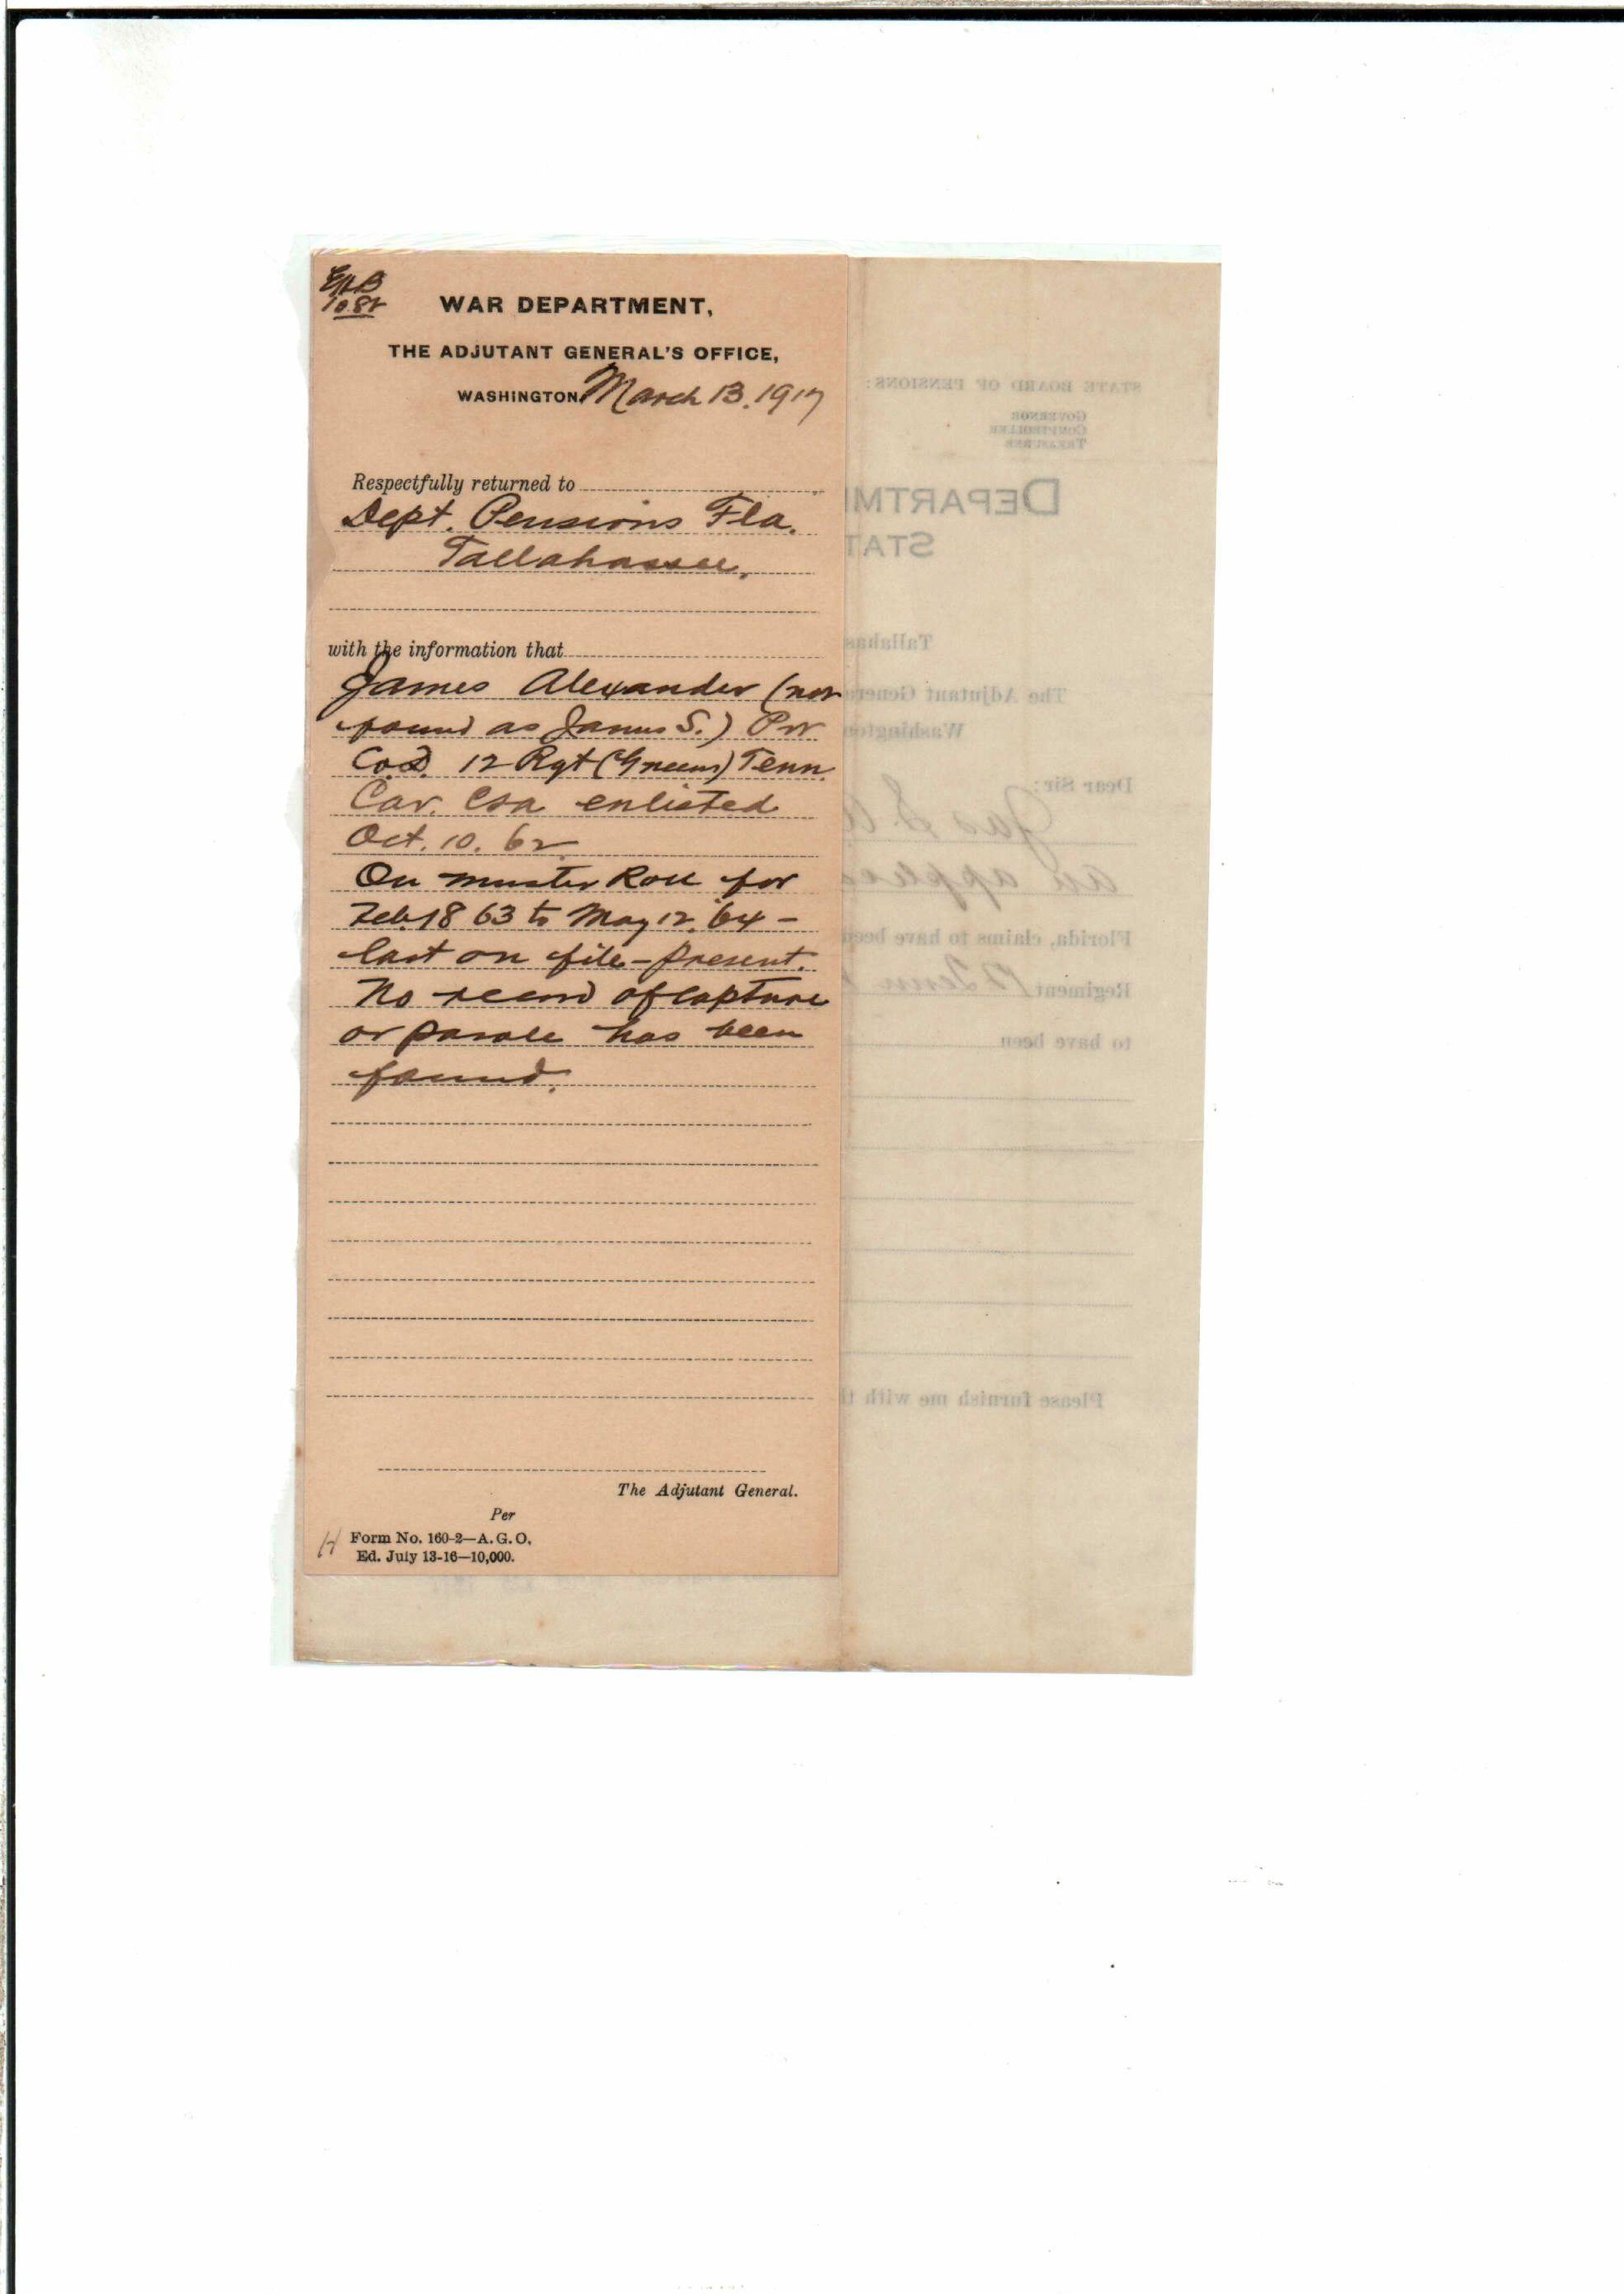 WAR DEPARTMENT,
THE ADJUTANT GENERAL'S OFFICE,
WASHINGTON, March 13. 1917
Respectfully returned to
Dept. Pensions Fla.
Tallahassee.
with the information that
James Alexander (not
found as James S.) Pvt
Co. D. 12 Rgt (Greens) Tenn.
Cav. CSA enlisted
Oct. 10. 62
On muster Roll for
Feb. 18 63 to May 12. 64 –
last on file – present.
No record of capture
or parole has been
found.
The Adjutant General.
Per
H Form No. 160-2—A. G. O.
Ed. July 13-16—10,000.
STATE BOARD OF PENSIONS:
GOVERNOR
COMPTROLLER
TREASURER
DEPARTM
STAT
Tallahas
The Adjutant Gener
Washington
Dear Sir:
Jas S. A
an applic
Florida, claims to have been
Regiment 12 Tenn
to have been
Please furnish me with th